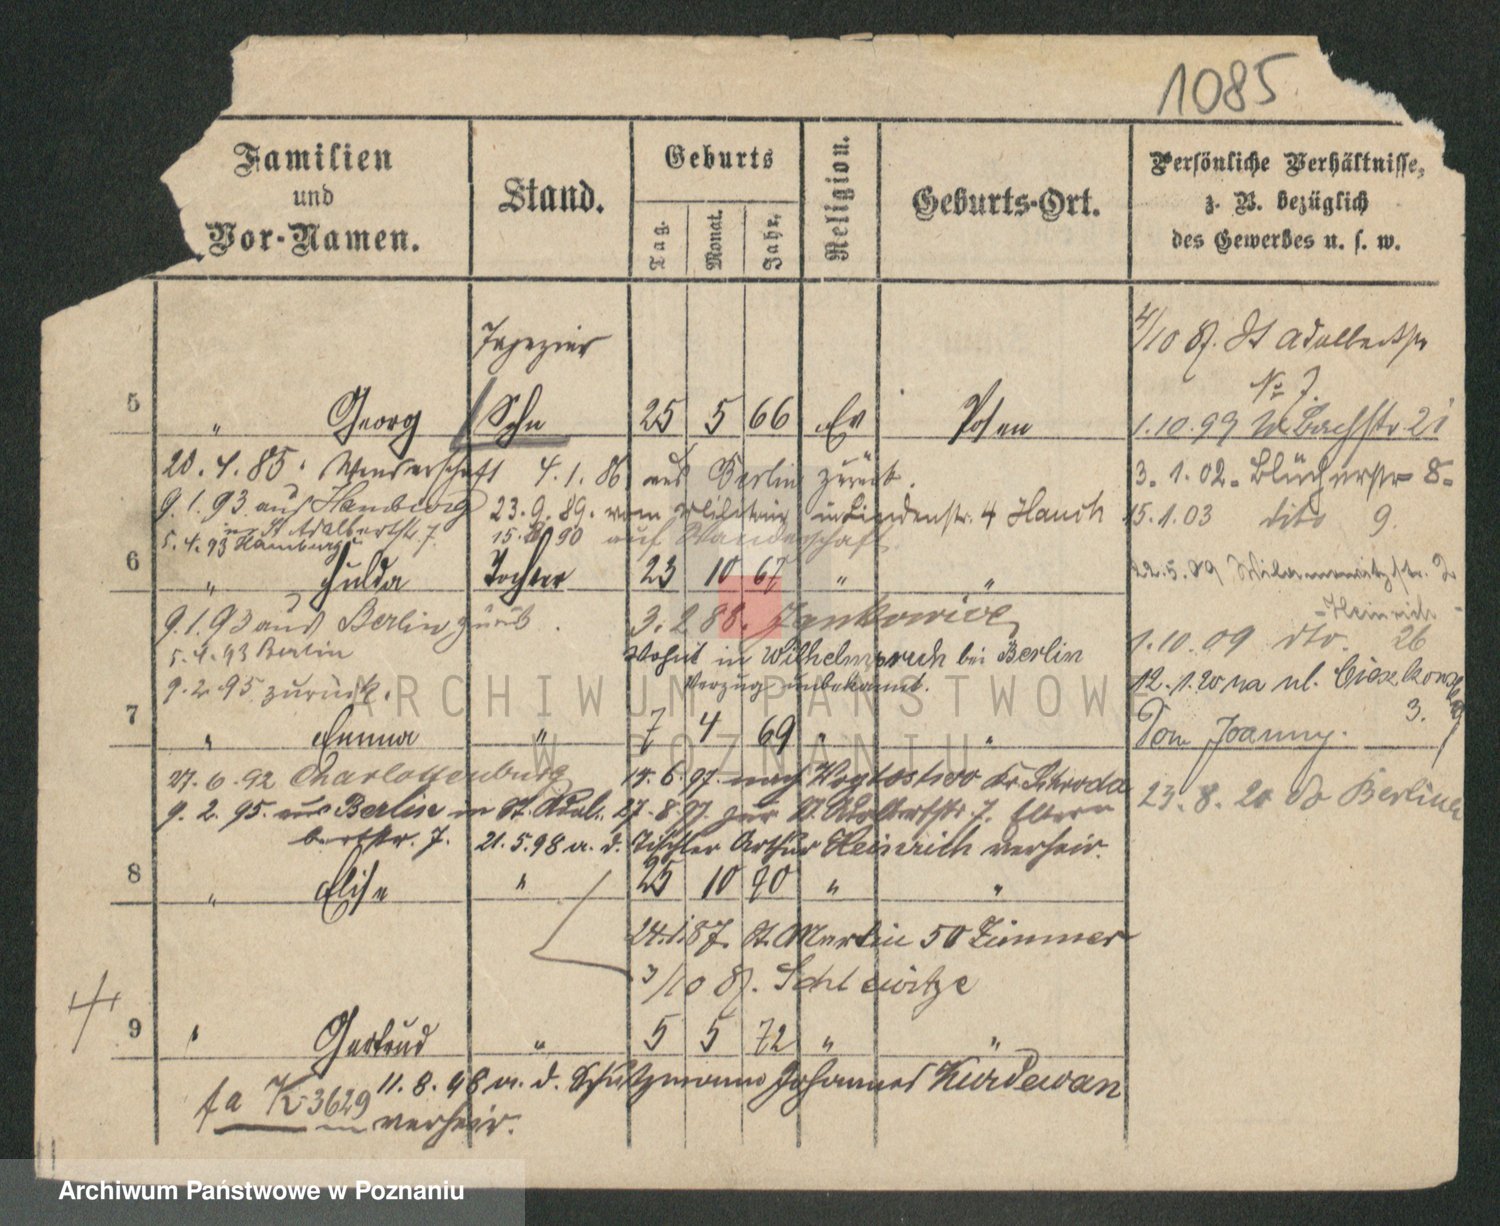 1085
Familien
und
Vor-Namen.
Stand.
Geburts
Tag.
Monat.
Jahr.
Religion.
Geburts-Ort.
Persönliche Verhältnisse,
z. B. bezüglich
des Gewerbes u. s. w.
Tapezier
4/10 87. St Adalbertstr
No 7.
5 " Georg Sohn 25 5 66 Ev Posen
1.10.99 Bachstr 21
20.4.85. Wanderschaft 4.1.86 aus Berlin zurück.
3.1.02. Blücherstr 8.
9.1.93 aus Hamburg 23.9.89. vom Militair in Lindenstr. 4 Hauch
in St Adalbertstr. 7.
15.1.03 dito 9.
5.4.93 Hamburg 15.8.90 auf Wanderschaft.
6 " Hulda Tochter 23 10 67 " "
22.5.09 Wilamowitzstr. 2
Heinrich.
9.1.93 aus Berlin zurück. 3.2.88. Jankowice
1.10.09 dto. 26
5.4.93 Berlin Wohnt in Wilhelmsruh bei Berlin
9.2.95 zurück. Verzug unbekannt.
12.1.20 na ul. Cieszkowskiego
3.
7 " Emma " 7 4 69 " "
Pom Joanny.
27.6.92 Charlottenburg 14.6.97. nach Kr. Schroda
23.8.20 do Berlina
9.2.95. aus Berlin in St. Adal- 27.8.97. zur St. Adalbertstr. 7. Eltern
bertstr. 7. 21.5.98 m. d. Tischler Arthur Heinrich verheir.
8 " Elise " 25 10 70 " "
24.1.87. St. Martin 50 Zimmer
3/10 87. Schlewitze
9 " Gertrud " 5 5 72 " "
11.8.98 m. d. Schutzmann Johannes Kurdewan
fa K 3629 verheir.
ARCHIWUM PAŃSTWOWE
W POZNANIU
Archiwum Państwowe w Poznaniu